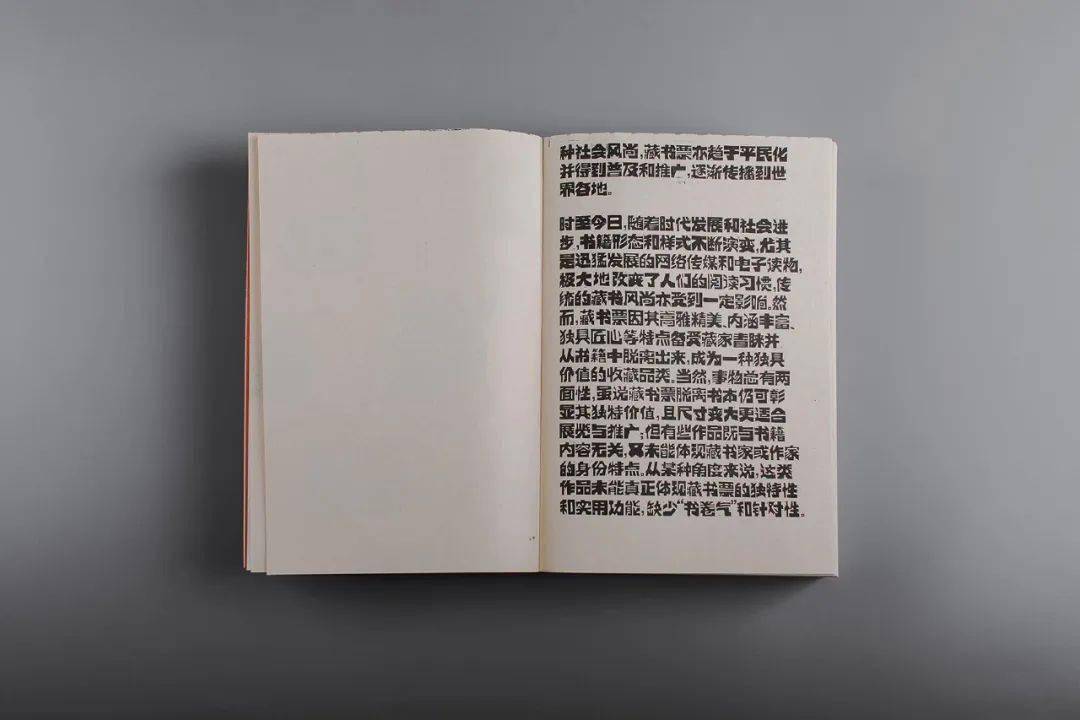 种社会风尚，藏书票亦趋于平民化
并得到普及和推广，逐渐传播到世
界各地。
时至今日，随着时代发展和社会进
步，书籍形态和样式不断演变，尤其
是迅猛发展的网络传媒和电子读物，
极大地改变了人们的阅读习惯，传
统的藏书风尚亦受到一定影响。然
而，藏书票因其高雅精美、内涵丰富、
独具匠心等特点备受藏家青睐并
从书籍中脱离出来，成为一种独具
价值的收藏品类。当然，事物总有两
面性，虽说藏书票脱离书本仍可彰
显其独特价值，且尺寸变大更适合
展览与推广；但有些作品既与书籍
内容无关，又未能体现藏书家或作家
的身份特点。从某种角度来说，这类
作品未能真正体现藏书票的独特性
和实用功能，缺少“书卷气”和针对性。